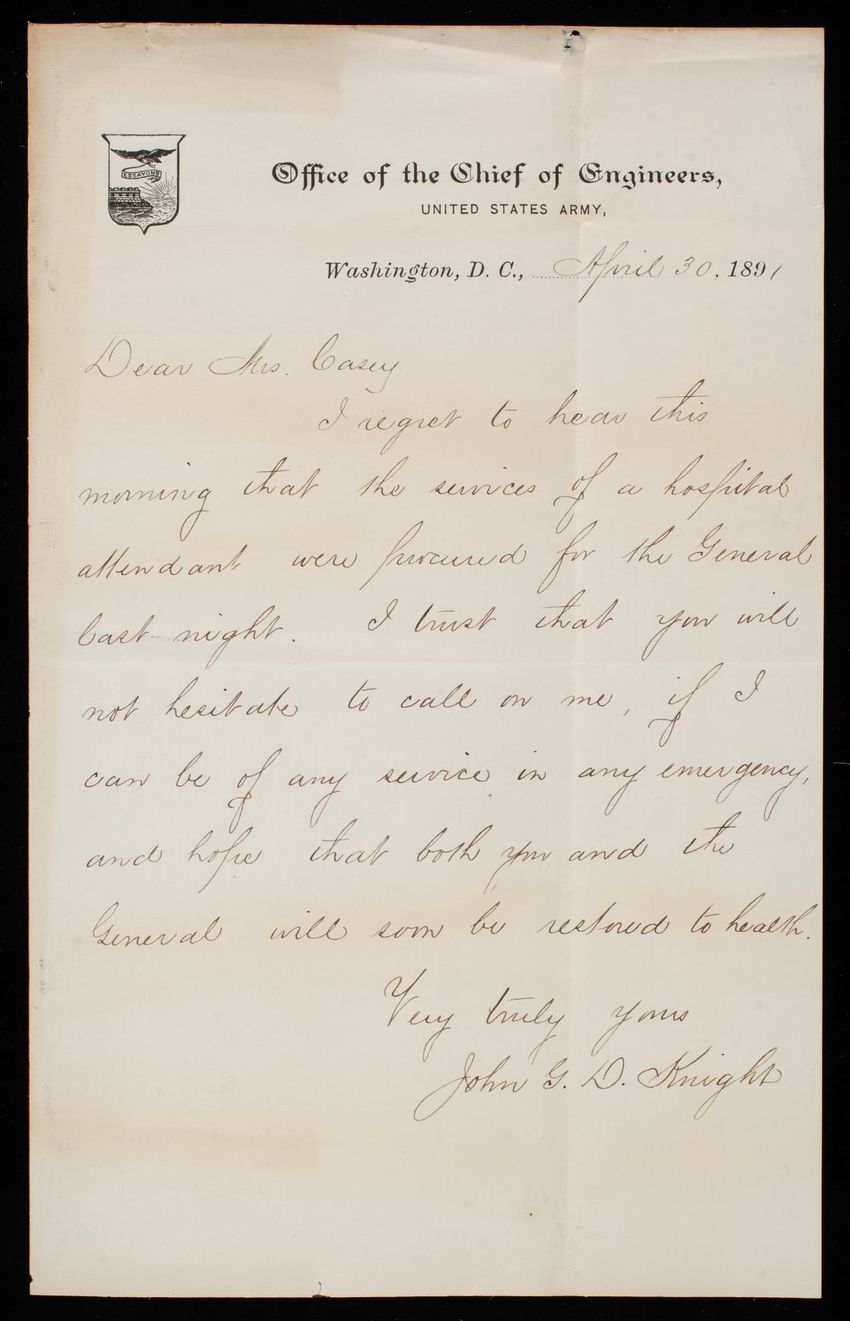 ESSAYONS
Office of the Chief of Engineers,
UNITED STATES ARMY,
Washington, D. C., April 30, 1891
Dear Mrs. Casey
I regret to hear this
morning that the services of a hospital
attendant were procured for the General
last night. I trust that you will
not hesitate to call on me, if I
can be of any service in any emergency,
and hope that both you and the
General will soon be restored to health.
Very truly yours
John G. D. Knight